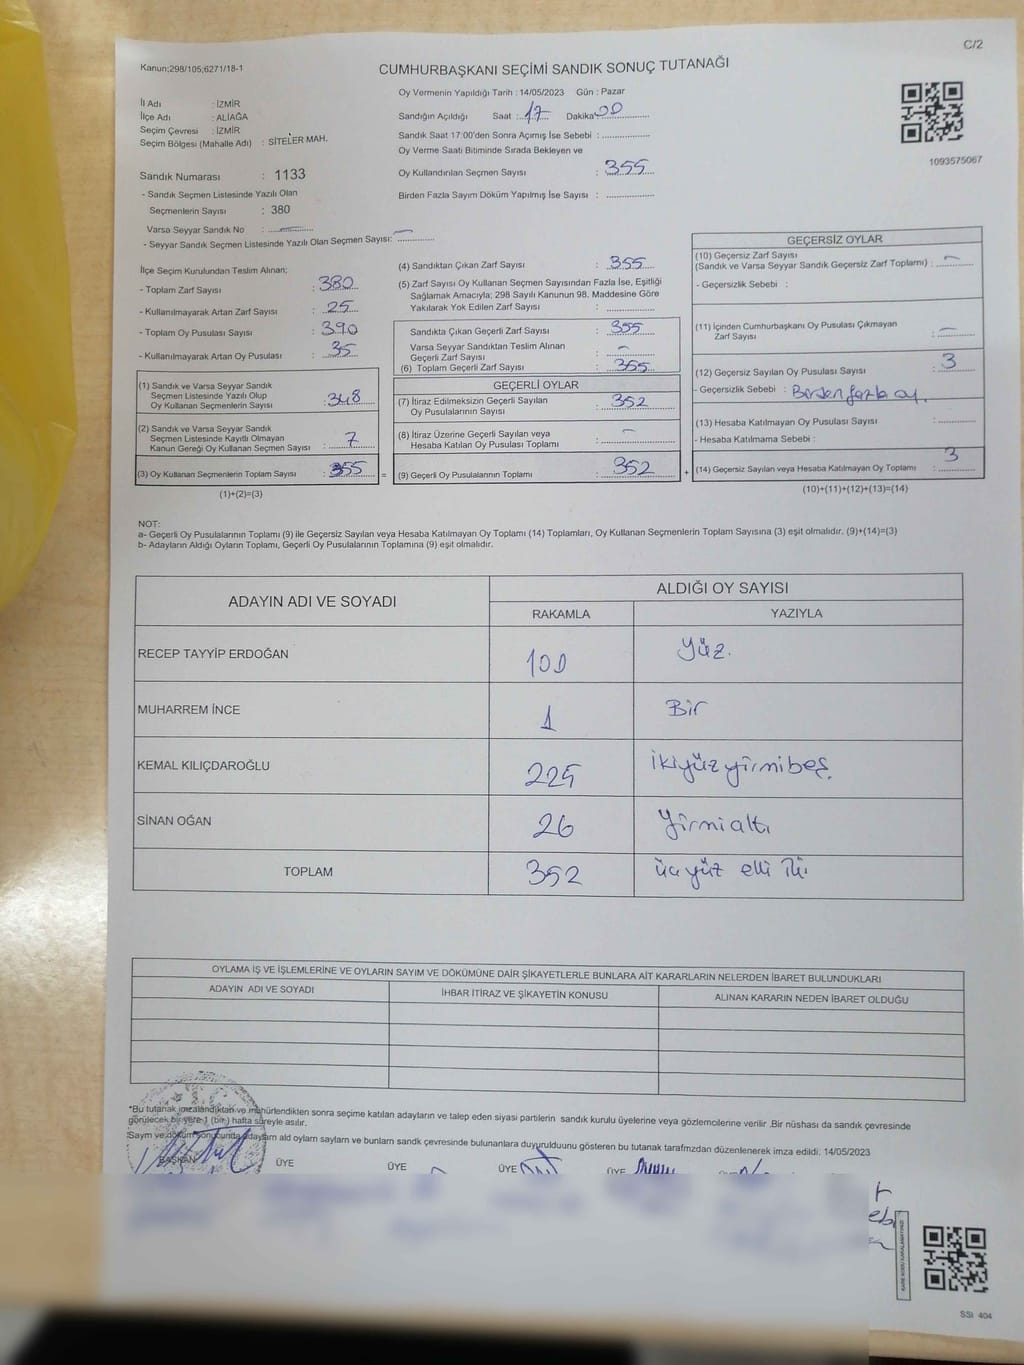 C/2
Kanun;298/105;6271/18-1
CUMHURBAŞKANI SEÇİMİ SANDIK SONUÇ TUTANAĞI
Oy Vermenin Yapıldığı Tarih : 14/05/2023 Gün : Pazar
İl Adı : İZMİR
İlçe Adı : ALİAĞA
Seçim Çevresi : İZMİR
Seçim Bölgesi (Mahalle Adı) : SİTELER MAH.
Sandığın Açıldığı Saat : 17 Dakika 00
Sandık Saat 17:00'den Sonra Açımış İse Sebebi :
Oy Verme Saati Bitiminde Sırada Bekleyen ve
Oy Kullandırılan Seçmen Sayısı : 355
Birden Fazla Sayım Döküm Yapılmış İse Sayısı :
1093575067
Sandık Numarası : 1133
- Sandık Seçmen Listesinde Yazılı Olan
Seçmenlerin Sayısı : 380
Varsa Seyyar Sandık No : —
- Seyyar Sandık Seçmen Listesinde Yazılı Olan Seçmen Sayısı: —
İlçe Seçim Kurulundan Teslim Alınan;
- Toplam Zarf Sayısı : 380
- Kullanılmayarak Artan Zarf Sayısı : 25
- Toplam Oy Pusulası Sayısı : 390
- Kullanılmayarak Artan Oy Pusulası : 35
(1) Sandık ve Varsa Seyyar Sandık
Seçmen Listesinde Yazılı Olup
Oy Kullanan Seçmenlerin Sayısı : 348
(2) Sandık ve Varsa Seyyar Sandık
Seçmen Listesinde Kayıtlı Olmayan
Kanun Gereği Oy Kullanan Seçmen Sayısı : 7
(3) Oy Kullanan Seçmenlerin Toplam Sayısı : 355 =
(1)+(2)=(3)
(4) Sandıktan Çıkan Zarf Sayısı : 355
(5) Zarf Sayısı Oy Kullanan Seçmen Sayısından Fazla İse, Eşitliği
Sağlamak Amacıyla; 298 Sayılı Kanunun 98. Maddesine Göre
Yakılarak Yok Edilen Zarf Sayısı :
Sandıkta Çıkan Geçerli Zarf Sayısı : 355
Varsa Seyyar Sandıktan Teslim Alınan
Geçerli Zarf Sayısı : —
(6) Toplam Geçerli Zarf Sayısı : 355
GEÇERLİ OYLAR
(7) İtiraz Edilmeksizin Geçerli Sayılan
Oy Pusulalarının Sayısı : 352
(8) İtiraz Üzerine Geçerli Sayılan veya
Hesaba Katılan Oy Pusulası Toplamı : —
(9) Geçerli Oy Pusulalarının Toplamı : 352 +
GEÇERSİZ OYLAR
(10) Geçersiz Zarf Sayısı
(Sandık ve Varsa Seyyar Sandık Geçersiz Zarf Toplamı) : —
- Geçersizlik Sebebi :
(11) İçinden Cumhurbaşkanı Oy Pusulası Çıkmayan
Zarf Sayısı : —
(12) Geçersiz Sayılan Oy Pusulası Sayısı : 3
- Geçersizlik Sebebi : Birden fazla oy.
(13) Hesaba Katılmayan Oy Pusulası Sayısı :
- Hesaba Katılmama Sebebi :
(14) Geçersiz Sayılan veya Hesaba Katılmayan Oy Toplamı : 3
(10)+(11)+(12)+(13)=(14)
NOT:
a- Geçerli Oy Pusulalarının Toplamı (9) ile Geçersiz Sayılan veya Hesaba Katılmayan Oy Toplamı (14) Toplamları, Oy Kullanan Seçmenlerin Toplam Sayısına (3) eşit olmalıdır. (9)+(14)=(3)
b- Adayların Aldığı Oyların Toplamı, Geçerli Oy Pusulalarının Toplamına (9) eşit olmalıdır.
ADAYIN ADI VE SOYADI ALDIĞI OY SAYISI
RAKAMLA YAZIYLA
RECEP TAYYİP ERDOĞAN 100 Yüz.
MUHARREM İNCE 1 Bir
KEMAL KILIÇDAROĞLU 225 ikiyüzyirmibeş
SİNAN OĞAN 26 Yirmialtı
TOPLAM 352 üçyüz elli iki
OYLAMA İŞ VE İŞLEMLERİNE VE OYLARIN SAYIM VE DÖKÜMÜNE DAİR ŞİKAYETLERLE BUNLARA AİT KARARLARIN NELERDEN İBARET BULUNDUKLARI
ADAYIN ADI VE SOYADI İHBAR İTİRAZ VE ŞİKAYETİN KONUSU ALINAN KARARIN NEDEN İBARET OLDUĞU
*Bu tutanak imzalandıktan ve mühürlendikten sonra seçime katılan adayların ve talep eden siyasi partilerin sandık kurulu üyelerine veya gözlemcilerine verilir .Bir nüshası da sandık çevresinde
görülecek bir yere 1 (bir) hafta süreyle asılır.
Sayım ve döküm sonucunda adayların ald oylam sayların ve bunların sandık çevresinde bulunanlara duyurulduunu gösteren bu tutanak tarafmzdan düzenlenerek imza edildi. 14/05/2023
BAŞKAN ÜYE ÜYE ÜYE ÜYE
SSI 404